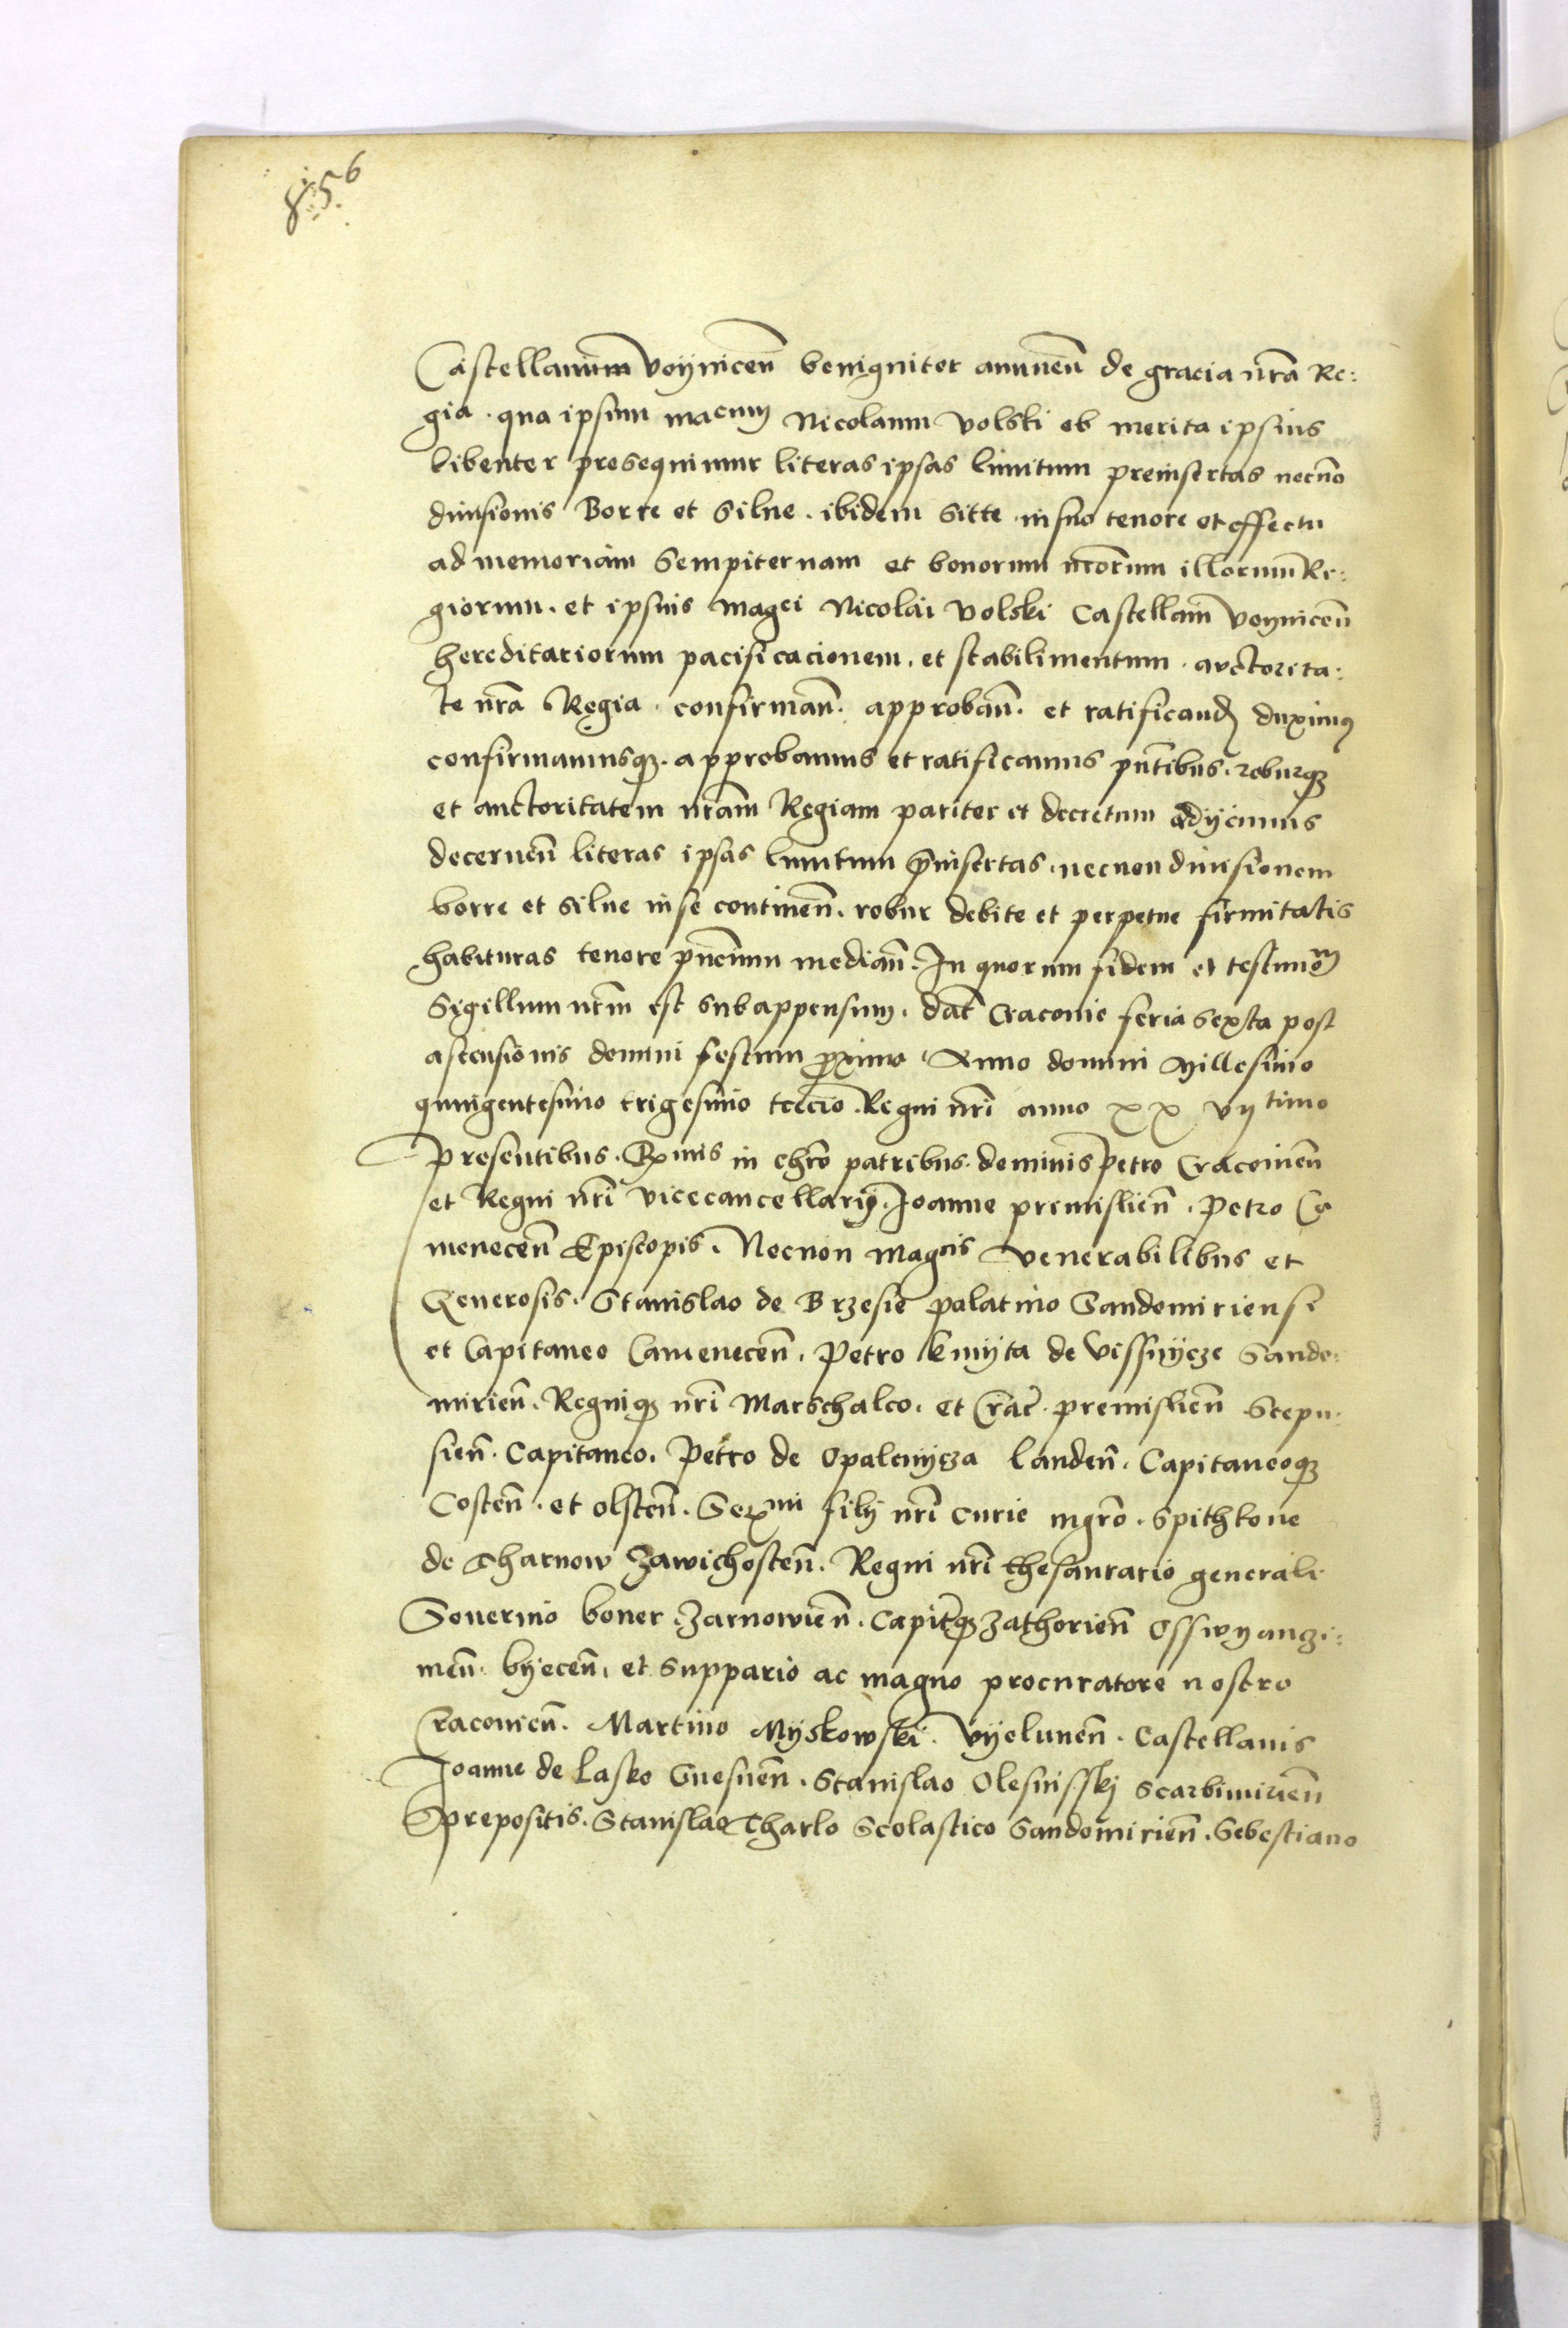 856
Castellanum voynicen̄ benigniter annuen̄ de gracia nr̄a Re:
gia. qua ipsum mag̅cum Nicolaum volski ob merita ipsius
libenter prosequimur literas ipsas limitum preinsertas necnō
diuisionis Borre et Silue. ibidem Sitte. in suo tenore et effectu
ad memoriam Sempiternam et bonorum nr̄orum illorum Re:
giorum. et ipsius mag̅ci Nicolai volski Castellani voynicen̄
hereditariorum pacificacionem. et stabilimentum. auctorita:
te nr̄a Regia. confirman̄. approban̄. et ratificand̄ duximus
confirmamusq3. approbamus et ratificamus pn̄tibus. roburq3
et auctoritatem nr̄am Regiam pariter et decretum adijcimus
decernen̄ literas ipsas limitum p̄insertas. necnon diuisionem
borre et silue in se continen̄. robur debite et perpetue firmitatis
habituras tenore pn̄cium median̄. In quorum fidem et testimoᵐ
Sigillum nr̄m est subappensum. dat̄ Cracouie feria sexta post
ascensionis domini festum p̄ximo. Anno domini Millesimo
quingentesimo trigesimo tercio. Regni nr̄i anno xx vij timo
Presentibus. Rx̄mis in chr̄o patribus. dominis Petro Cracouien̄
et Regni nr̄i vicecancellario. Joanne premislien̄. Petro Ca
menecen̄ Episcopis. Necnon Mag̅cis venerabilibus et
Generosis. Stanislao de Brzesie palatino Sandomiriensi
et Capitaneo Camenecen̄. Petro kmyta de vissnycze Sando:
mirien̄. Regniq3 nr̄i Marschalco. et Crac̄. premislien̄ Scepu:
sien̄. Capitaneo. Petro de Opalenycza landen̄. Capitaneoq3
Costen̄. et olsten̄. Serᵐⁱ filij nr̄i Curie mgr̄o. Spithkone
de Tharnow Zawichosten̄. Regni nr̄i thesaurario generali
Seuerino boner. Zarnowien̄. Capit̄q3 Zathorien̄ Osswyanczi:
men̄. byecen̄. et Suppario ac magno procuratore nostro
Cracouien̄. Martino Myskowski. vyelunen̄. Castellanis
Joanne de lasko Gnesnen̄. Stanislao Olesnisskj scarbimirien̄
prepositis. Stanislao Tharlo Scolastico Sandomirien̄. Sebestiano